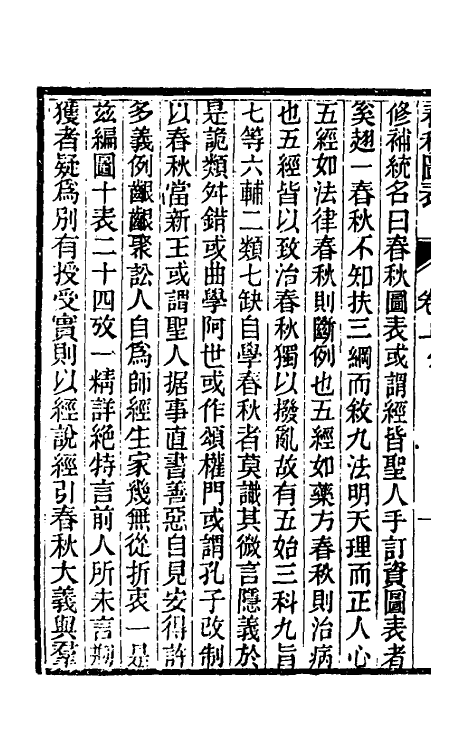 春秋圖表 卷上 一
修補統名曰春秋圖表或謂經皆聖人手訂資圖表者
奚翅一春秋不知扶三綱而敘九法明天理而正人心
五經如法律春秋則斷例也五經如藥方春秋則治病
也五經皆以致治春秋獨以撥亂故有五始三科九旨
七等六輔二類七缺自學春秋者莫識其微言隱義於
是詭類舛錯或曲學阿世或作頌權門或謂孔子改制
以春秋當新王或謂聖人据事直書善惡自見安得許
多義例齦齦聚訟人自爲師經生家幾無從折衷一是
玆編圖十表二十四攷一精詳絶特言前人所未言期
獲者疑爲別有授受實則以經說經引春秋大義與羣